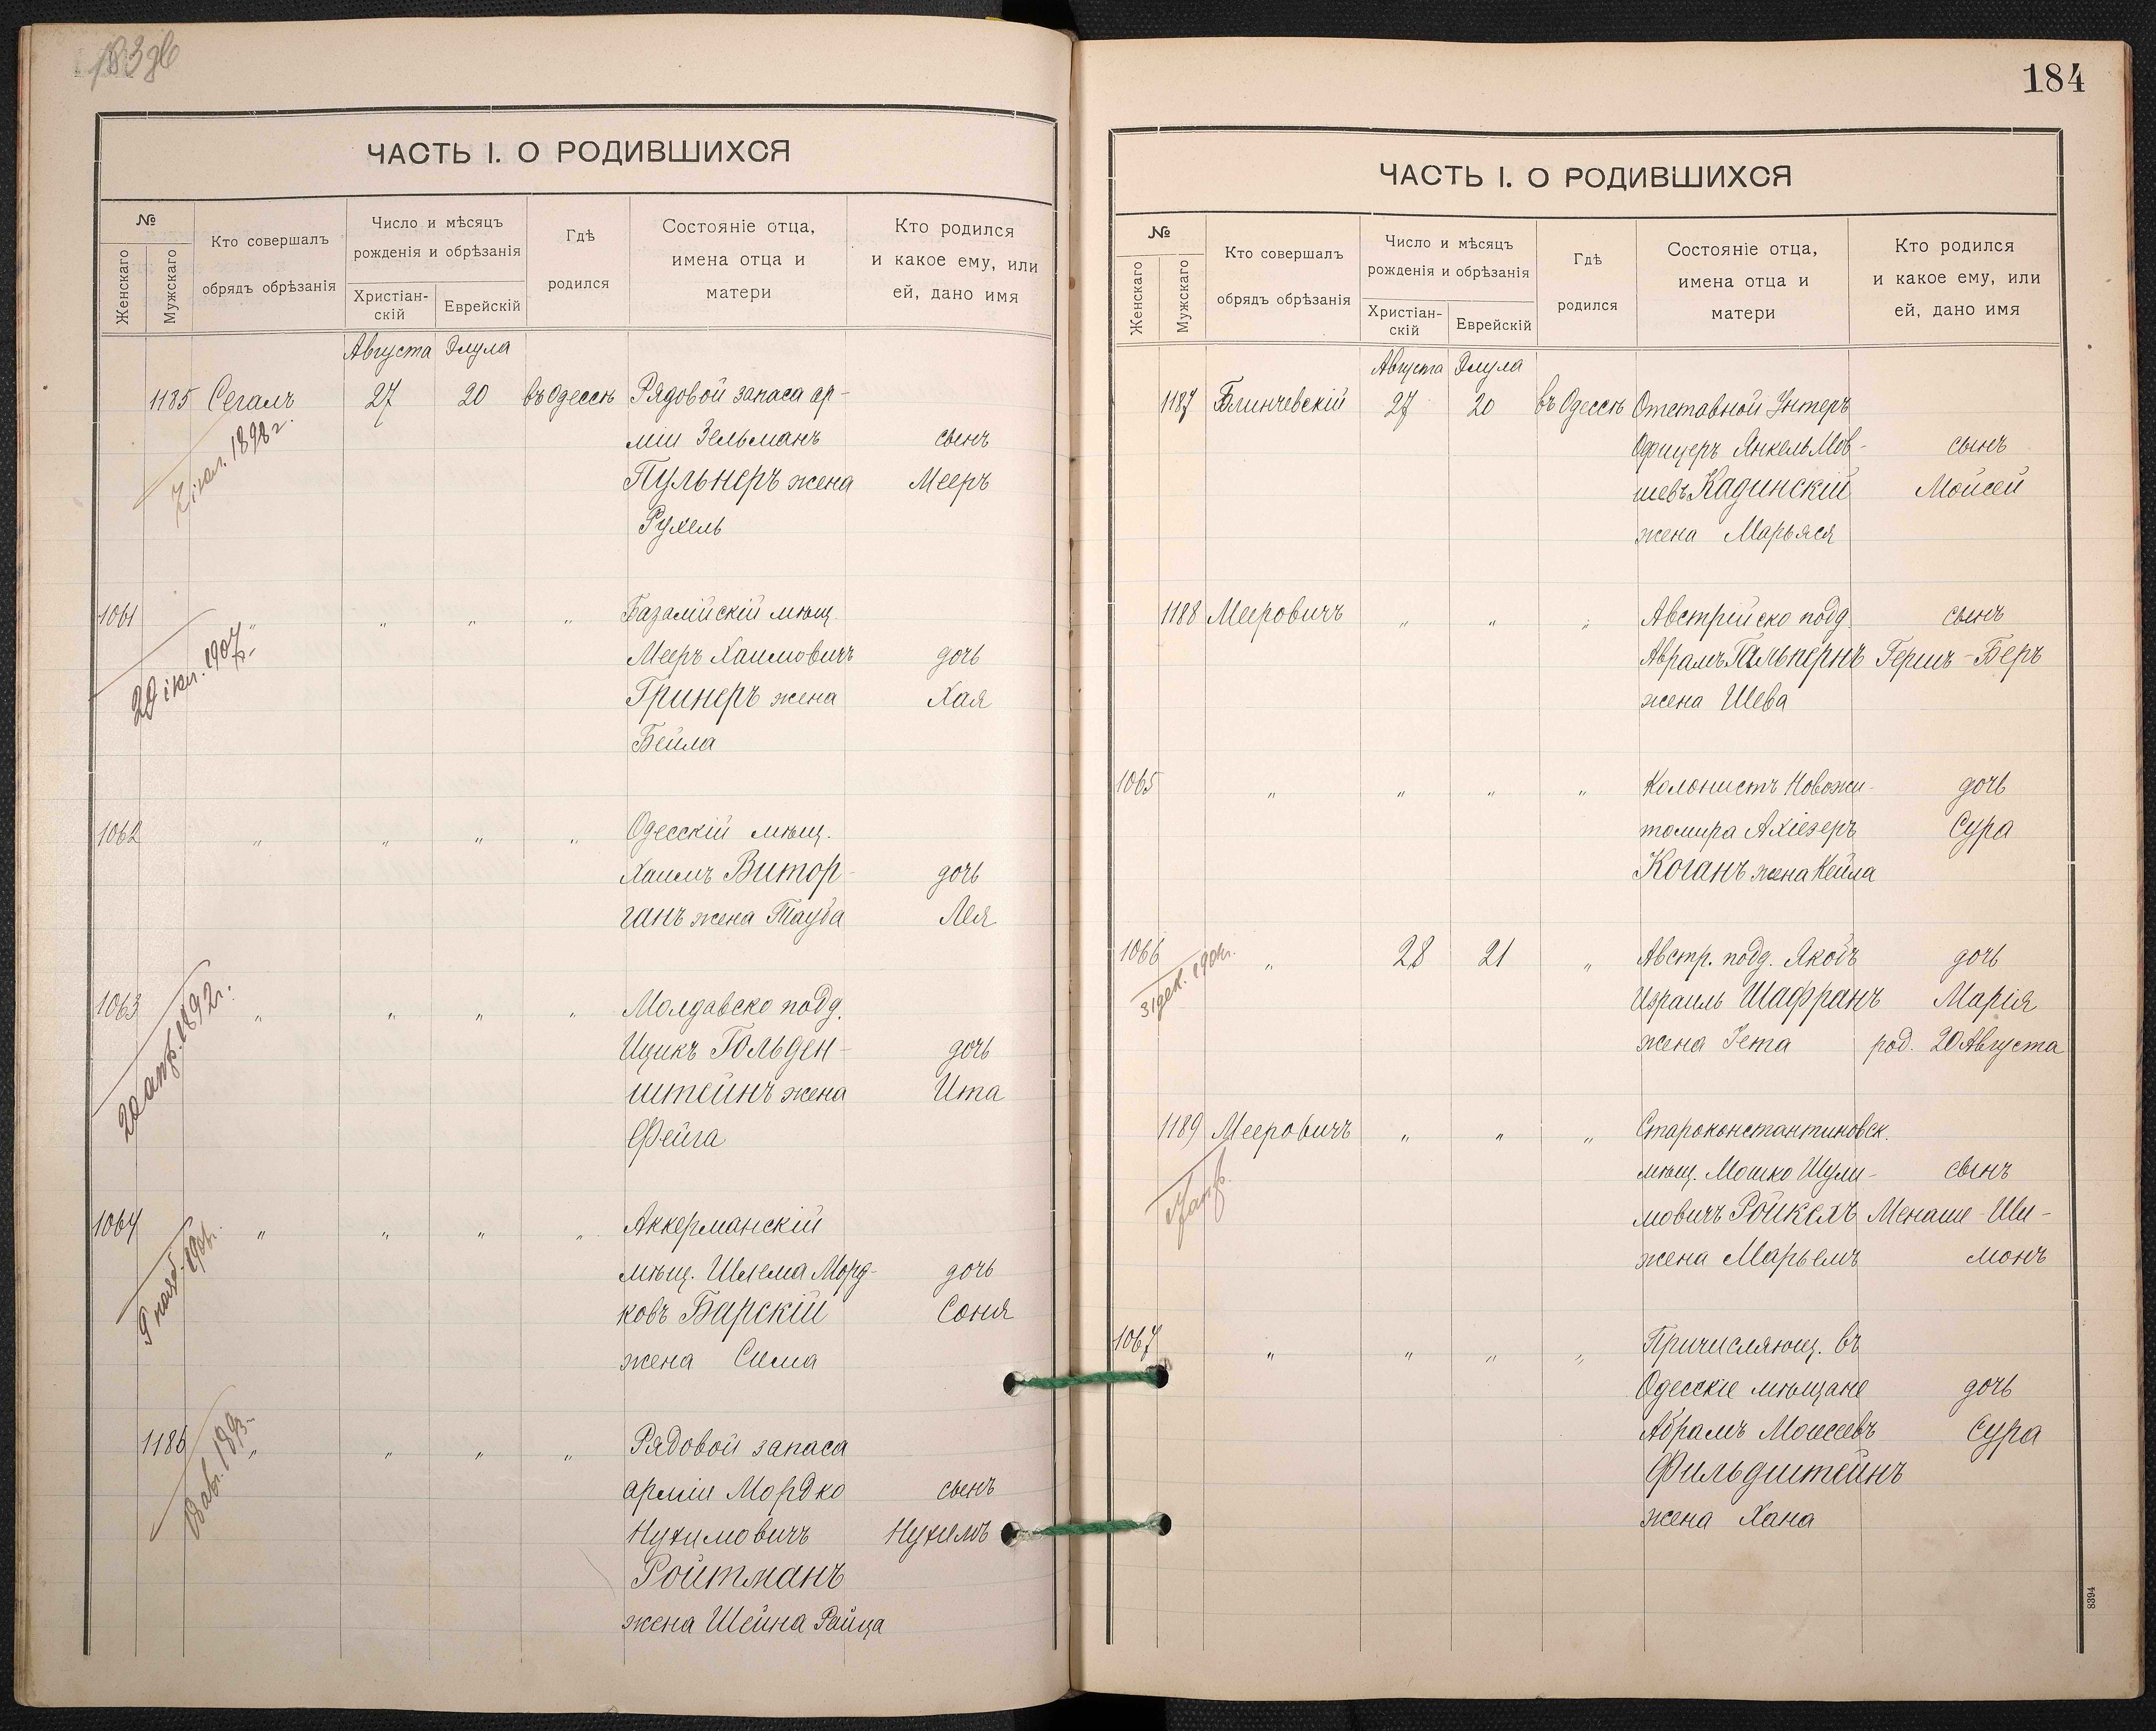 ЧАСТЬ I. О РОДИВШИХСЯ
№
Женскаго
Мужскаго
Кто совершалъ
обрядъ обрѣзанія
Число и мѣсяцъ
рожденія и обрѣзанія
Христіан-
скій
Еврейскій
Гдѣ
родился
Состояніе отца,
имена отца и
матери
Кто родился
и какое ему, или
ей, дано имя
Августа Элула
1185 Сегалъ 27 20 въ Одессѣ Рядовой запаса ар-
міи Зельманъ сынъ
Пульнеръ жена Мееръ
Рухель
1898 г.
1061 " " " " Базалійскій мѣщ
Мееръ Хаимовичъ дочь
Гринеръ жена Хая
Бейла
1907
1062 " " " " Одесскій мѣщ.
Хаимъ Витор-
дочь
ганъ жена Тауба Лея
1063 " " " " Молдавско подд.
Ицикъ Гольден- дочь
штейнъ жена Ита
Фейга
20 апр. 1892 г.
1064 " " " " Аккерманскій
мѣщ. Шлема Морд- дочь
ковъ Барскій Соня
жена Сима
9 нояб.
1186 " " " " Рядовой запаса
арміи Мордко сынъ
Нухимовичъ Нухимъ
Ройтманъ
жена Шейна Райца
184
ЧАСТЬ I. О РОДИВШИХСЯ
№
Женскаго
Мужскаго
Кто совершалъ
обрядъ обрѣзанія
Число и мѣсяцъ
рожденія и обрѣзанія
Христіан-
скій
Еврейскій
Гдѣ
родился
Состояніе отца,
имена отца и
матери
Кто родился
и какое ему, или
ей, дано имя
Августа Элула
1187 Блинчевскій 27 20 въ Одессѣ Отставной Унтеръ
Офицеръ Янкель Мов- сынъ
шевъ Кадинскій Мойсей
жена Марьяся
1188 Мееровичъ " " " Австрійско подд. сынъ
Аврамъ Гальпернъ Гершъ-Беръ
жена Шева
1065 " " " " Колонистъ Новожи- дочь
томира Ахіезеръ Сура
Коганъ жена Кейла
1066 " 28 21 " Австр. подд. Якобъ дочь
Израиль Шафранъ Марія
жена Гета род. 20 Августа
31 дек.
1189 Мееровичъ " " " Староконстантиновск.
мѣщ. Мошко Шули- сынъ
мовичъ Ройкехъ Менаше-Ши-
жена Марьемъ монъ
1067 " " " " Причисляющ. въ
Одесскіе мѣщане дочь
Абрамъ Моисеевъ Сура
Фильдштейнъ
жена Хана
8394